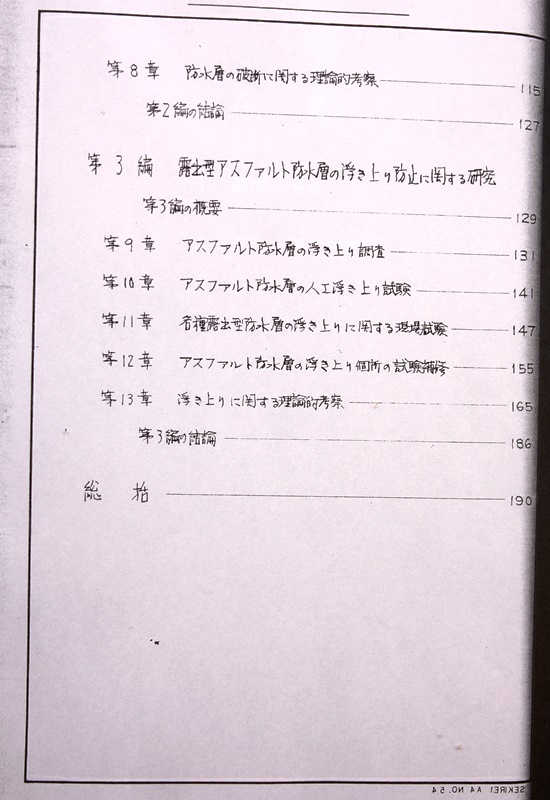 第8章 防水層の破断に関する理論的考察 115
第2編の結論 127
第3編 露出型アスファルト防水層の浮き上り防止に関する研究
第3編の概要 129
第9章 アスファルト防水層の浮き上り調査 131
第10章 アスファルト防水層の人工浮き上り試験 141
第11章 各種露出型防水層の浮き上りに関する現場試験 147
第12章 アスファルト防水層の浮き上り個所の試験補修 155
第13章 浮き上りに関する理論的考察 165
第3編の結論 186
総括 190
SEKIREI A4 NO. 54